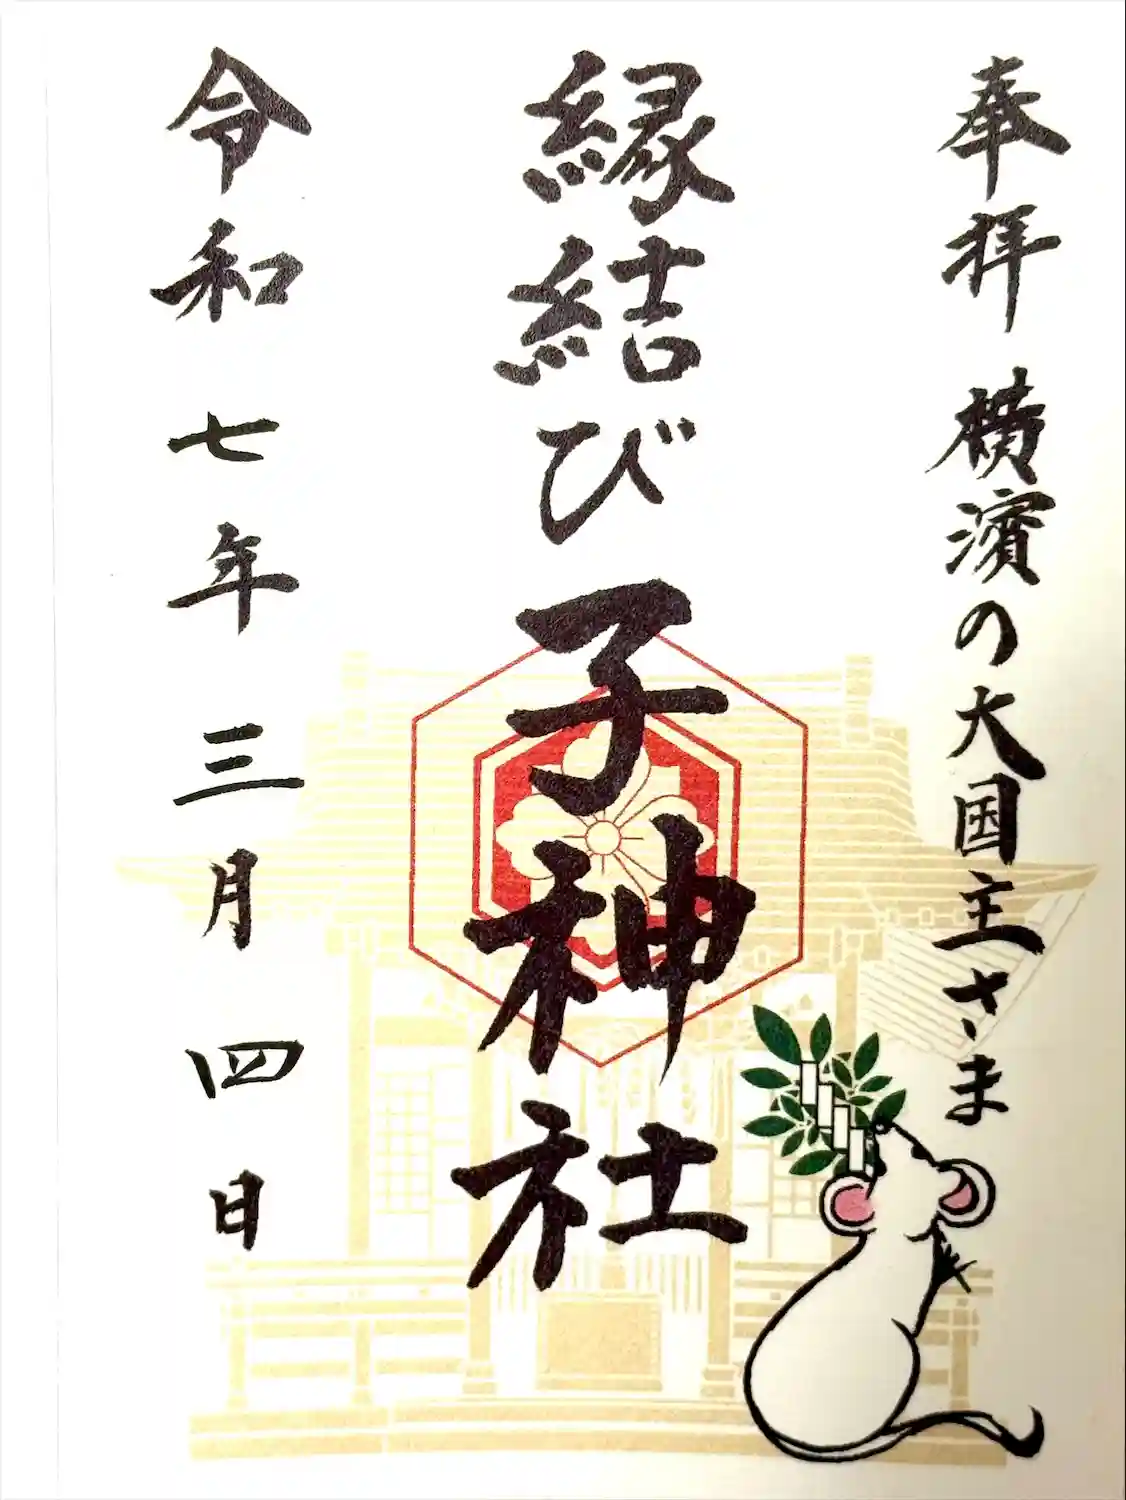 奉拝 横濱の大国主さま
縁結び 子神社
令和 七年 三月 四日